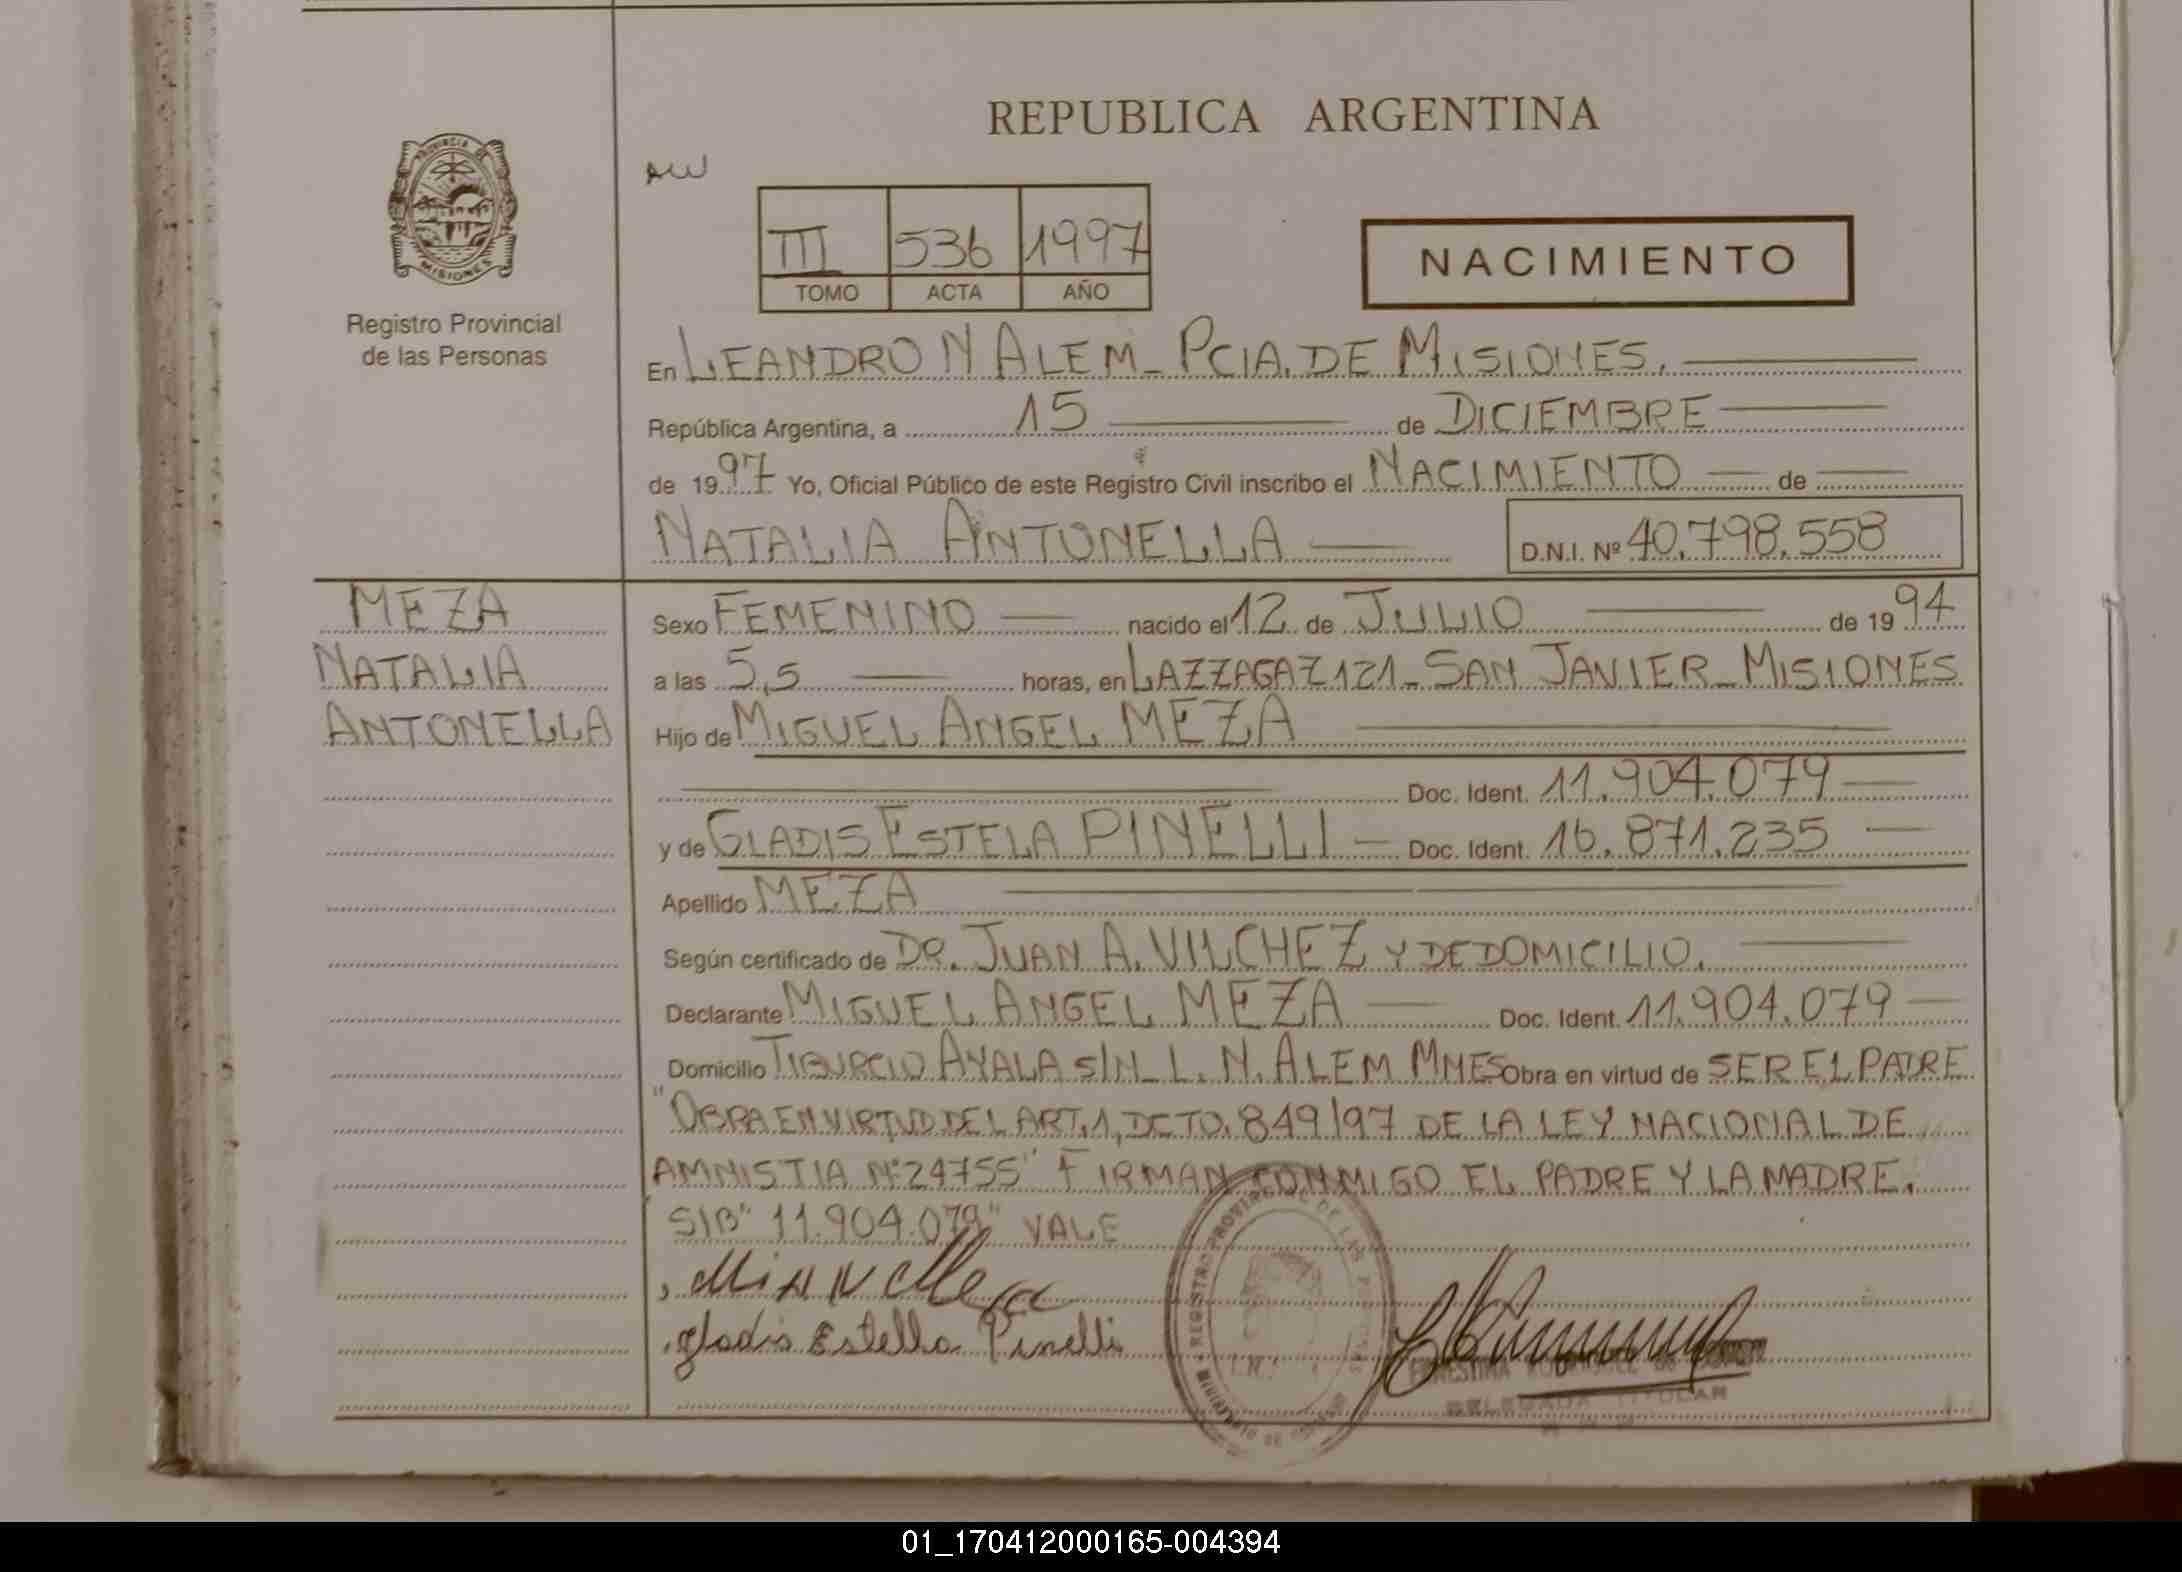 REPUBLICA ARGENTINA
PROVINCIA DE
MISIONES
Registro Provincial
de las Personas
III 536 1997
TOMO ACTA AÑO
NACIMIENTO
En LEANDRO N ALEM_ PCIA. DE MISIONES.
República Argentina, a 15 de DICIEMBRE
de 1997 Yo, Oficial Público de este Registro Civil inscribo el NACIMIENTO de
NATALIA ANTONELLA D.N.I. Nº 40.798.558
MEZA
NATALIA
ANTONELLA
Sexo FEMENINO nacido el 12 de JULIO de 1994
a las 5,5 horas, en LAZZAGAZ 121_ SAN JAVIER_ MISIONES
Hijo de MIGUEL ANGEL MEZA
Doc. Ident. 11.904.079
y de GLADIS ESTELA PINELLI Doc. Ident. 16.871.235
Apellido MEZA
Según certificado de DR. JUAN A. VILCHEZ Y DE DOMICILIO.
Declarante MIGUEL ANGEL MEZA Doc. Ident. 11.904.079
Domicilio TIBURCIO AYALA S/N_ L. N. ALEM MNES Obra en virtud de SER EL PADRE
"OBRA EN VIRTUD DEL ART.1, DCTO. 849/97 DE LA LEY NACIONAL DE
AMNISTIA Nº 24755" FIRMAN CONMIGO EL PADRE Y LA MADRE.
S/B "11.904.079" VALE
Gladis Estella Pinelli
REGISTRO PROVINCIAL DE LAS
DELEGADA TITULAR
01_170412000165-004394